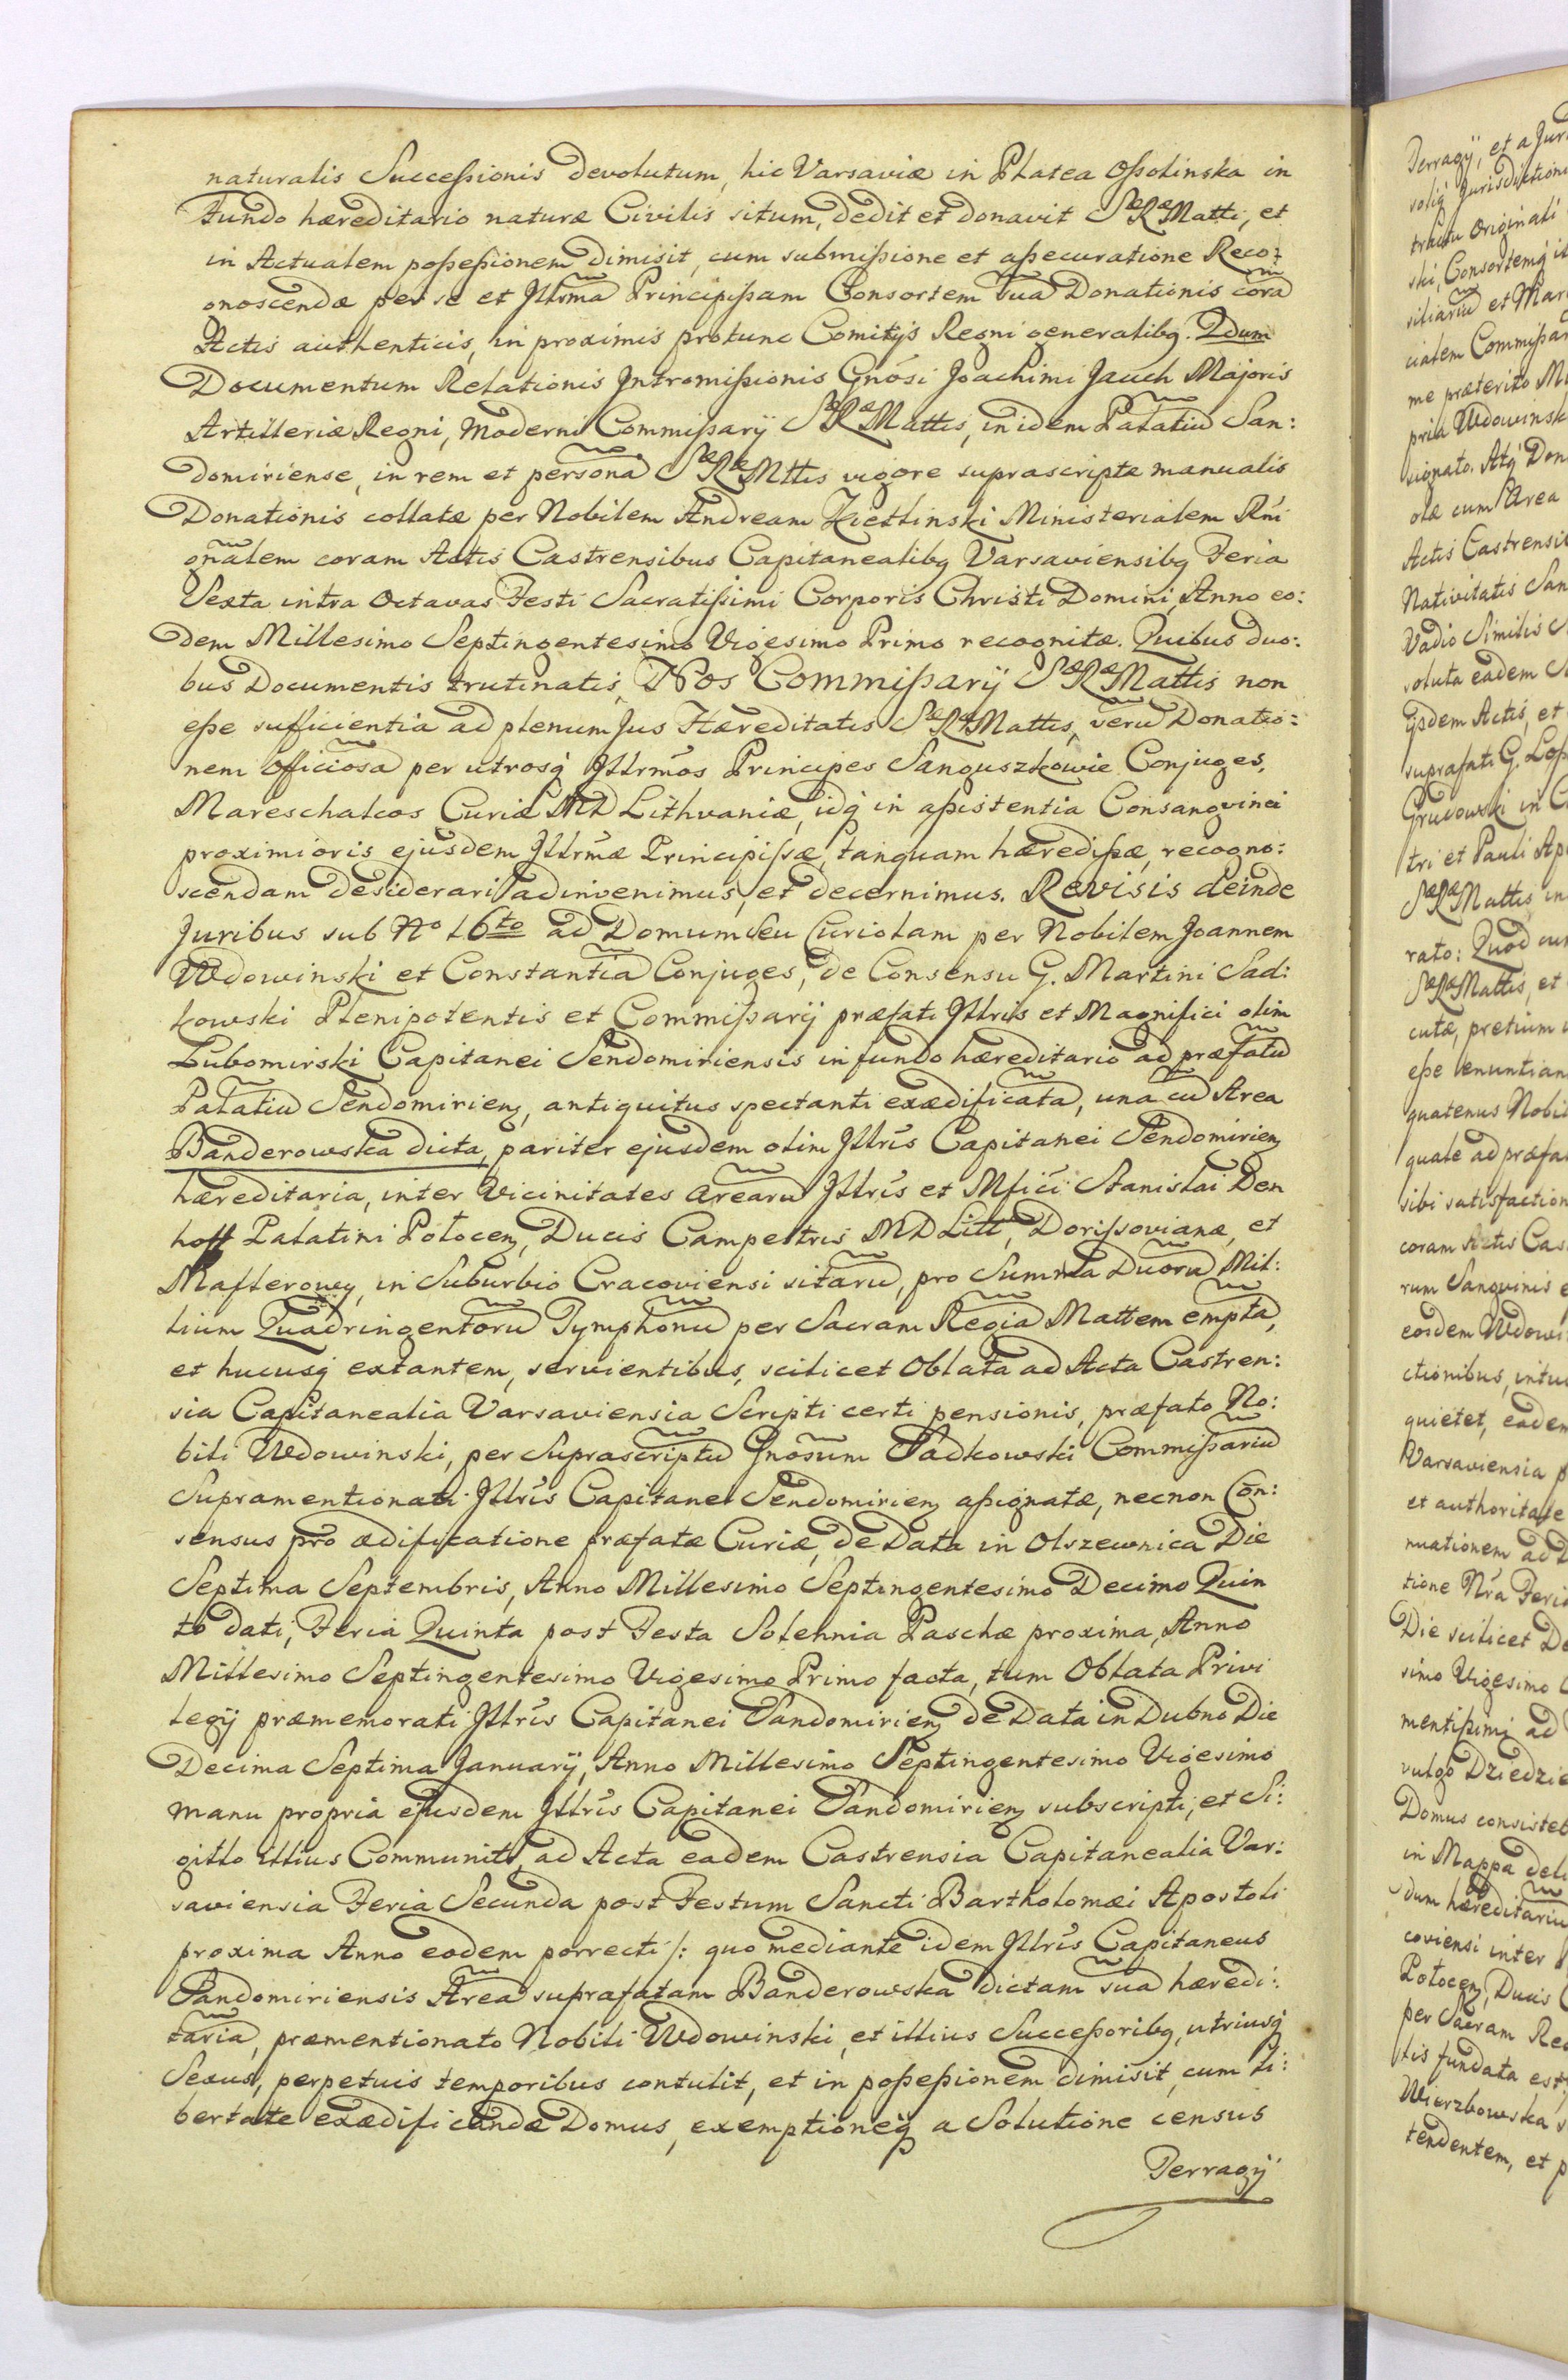 naturalis Succeßionis Devolutum, hic Varsaviæ in Platea Oßolinska in
Fundo hæreditario naturæ Civilis situm, dedit et donavit SæRæMatti, et
in Actualem poßeßionem dimisit, cum submißione et aßecuratione Reco:
gnoscendæ per se et Jllrm̃a Principißam Consortem sua Donationis corã
Actis authenticis, in proximis protunc Comitÿs Regni generalibq. 2dum
Documentum Relationis Jntromißionis Gnósi Joachimi Jauch Majoris
Artilleriæ Regni, Moderni Commißarÿ SæRæMattis, in idem Palatiũ San:
domiriense, in rem et personã SæRæMttis vigore suprascriptæ manualis
Donationis collatæ per Nobilem Andream Kietlinski Ministerialem Rni
gñalem coram Actis Castrensibus Capitanealibq Varsaviensibq Feria
Sexta intra Octavas Festi Sacratißimi Corporis Christi Domini, Anno eo:
dem Millesimo Septingentesimo Vigesimo Primo recognitæ. Quibus duo:
bus Documentis trutinatis, Nos Commißarÿ SæRæMattis non
eße sufficientia ad plenum Jus Hæreditatis SæRæMattis, verũ Donatio:
nem officiosã per utrosq Jllrmos Principes Sanguszkowie Conjuges,
Mareschalcos Curiæ MD Lithvaniæ, idq in aßistentia Consangvinei
proximioris ejusdem Jllrmæ Principißæ, tanquam hæredißæ, recogno:
scendam desiderari adinvenimus, et decernimus. Revisis deinde
Juribus sub No 16to ad Domum seu Curiolam per Nobilem Joannem
Wdowinski et Constantiã Conjuges, de Consensu G. Martini Sad:
kowski Plenipotentis et Commißarÿ præfati Jllris et Magnifici olim
Lubomirski Capitanei Sendomiriensis in fundo hæreditario ad præfatũ
Palatiũ Sendomirienq, antiquitus spectanti exædificatã, una cũ Area
Banderowska dicta, pariter ejusdem olim Jllris Capitanei Sendomirienq
hæreditaria, inter Vicinitates arearũ Jllris et Mfici Stanislai Den
hoff Palatini Polocenq, Ducis Campestris MD Litt, Dorißovianæ, et
Mafterowey, in Suburbio Cracoviensi sitarũ, pro Summa Duorũ Mil:
lium Quadringentorũ Tymphonũ per Sacram Regiã Mattem emptã,
et hucusq extantem, servientibus, scilicet Oblata ad Acta Castren:
sia Capitanealia Varsaviensia Scripti certi pensionis, præfato No:
bili Wdowinski, per Suprascriptũ Gnosum Sadkowski Commißariũ
Supramentionati Jllris Capitanei Sendomirienq aßignatæ, necnon Con:
sensus pro ædificatione præfatæ Curiæ, de Data in Olszewnica Die
Septima Septembris, Anno Millesimo Septingentesimo Decimo Quin
to dati, Feria Quinta post Festa Solennia Paschæ proxima, Anno
Millesimo Septingentesimo Vigesimo Primo facta, tum Oblata Privi
legÿ præmemorati Jllris Capitanei Sandomirienq de Data in Dubno Die
Decima Septima Januarÿ, Anno Millesimo Septingentesimo Vigesimo
manu propria ejusdem Jllris Capitanei Sandomirienq subscripti, et Si:
gillo illius Communiti, ad Acta eadem Castrensia Capitanealia Var:
saviensia Feria Secunda post Festum Sancti Bartholomæi Apostoli
proxima Anno eodem porrecti /: quo mediante idem Jllris Capitaneus
Sandomiriensis Areã suprafatam Banderowska dictam suã hæredi:
tariã, præmentionato Nobili Wdowinski, et illius Succeßoribq, utriusq
Sexus, perpetuis temporibus contulit, et in poßeßionem dimisit, cum li:
bertate exædificandæ Domus, exemptioneq a Solutione census
Terragÿ
Terragÿ, et a Jur
soliq Jurisdiction
tractu Originali
ski, Consortemq
siliariũ et Mar
cialem Commißar
me præterito
priã Wdowinsk
signato. Atq Don
olæ cum Area
Actis Castrensi
Nativitatis San
Vadio Similis
soluta eadem
ÿsdem Actis, et
suprafati G. Loß
Grucowski in
tri et Pauli Ap
SæRæMattis, in
rato: Quod
SæRæMattis, et
cutæ, pretium
eße
quatenus Nobil
quale ad præfa
sibi satisfaction
coram Actis Cas
rum Sanguinis
eosdem Wdowi
ctionibus,
quietet, eadem
Varsaviensia
et authoritate
nuationem ad
tione Nra Feri
Die scilicet De
simo Vigesimo
mentißimi ad
vulgo Dziedzi
Domus consiste
in Mappa deli
dum hæreditariũ
coviensi inter
Polocenq, Ducis
per Sacram Re
tis fundata est,
Wierzbowska
tendentem, et